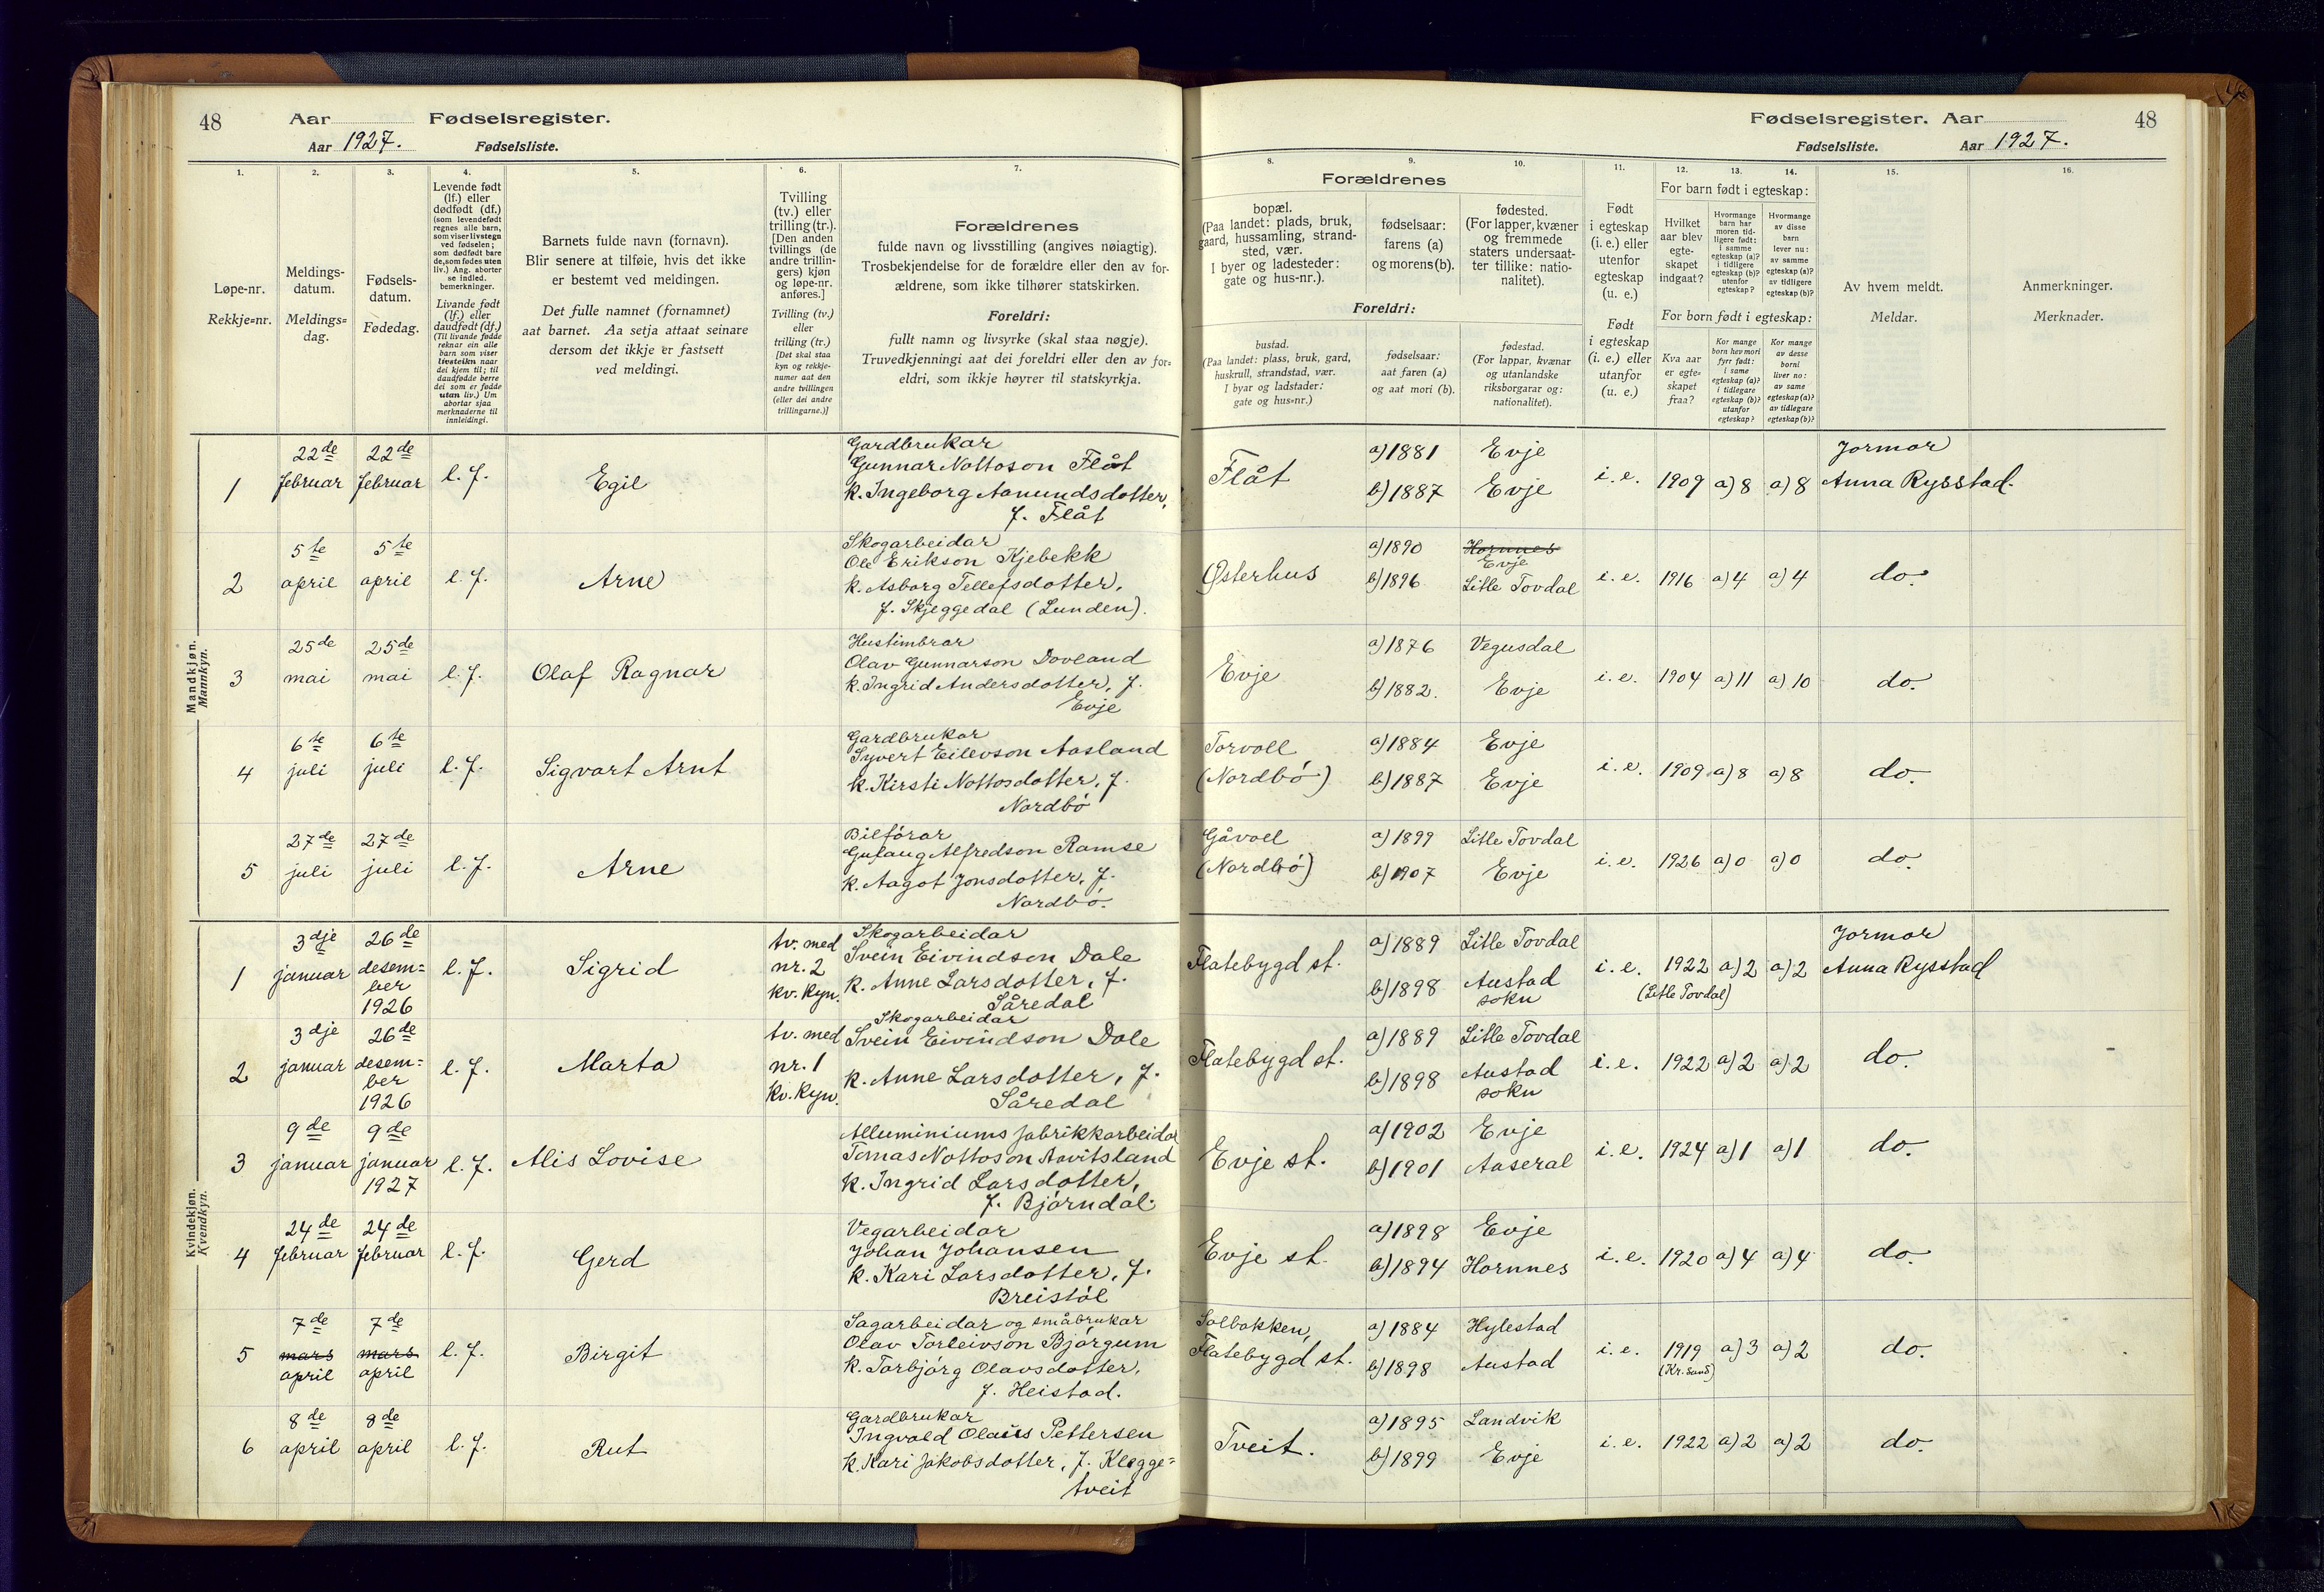 48 Aar Fødselsregister.
Aar 1927. Fødselsliste.
1. 2. 3. 4. 5. 6. 7.
Løpe-nr.
Rekkje=nr.
Meldings-
datum.
Meldings=
dag.
Fødsels-
datum.
Fødedag.
Levende født
(lf.) eller
dødfødt (df.)
(som levendefødt
regnes alle barn,
som viser livstegn
ved fødselen;
som dødfødt bare
de, som fødes uten
liv.) Ang. aborter
se indled.
bemerkninger.
Livande født
(lf.) eller
daudfødt (df.)
(Til livande fødde
reknar ein alle
barn som viser
livsteikn naar
dei kjem til; til
daudfødde berre
dei som er fødde
utan liv.) Um
abortar sjaa
merknaderne til
innleidingi.
Barnets fulde navn (fornavn).
Blir senere at tilføie, hvis det ikke
er bestemt ved meldingen.
Det fulle namnet (fornamnet)
aat barnet. Aa setja attaat seinare
dersom det ikkje er fastsett
ved meldingi.
Tvilling
(tv.) eller
trilling (tr.).
[Den anden
tvillings (de
andre trillin-
gers) kjøn
og løpe-nr.
anføres.]
Tvilling (tv.)
eller
trilling (tr.)
[Det skal staa
kyn og rekkje-
numer aat den
andre tvillingen
(eller dei andre
trillingarne.)]
Forældrenes
fulde navn og livsstilling (angives nøiagtig).
Trosbekjendelse for de forældre eller den av for-
ældrene, som ikke tilhører statskirken.
Foreldri:
fullt namn og livsyrke (skal staa nøgje).
Truvedkjenningi aat dei foreldri eller den av for=
eldri, som ikkje høyrer til statskyrkja.
Mandkjøn.
Mannkyn.
1 22de februar 22de februar l. f. Egil
Gardbrukar
Gunnar Nottoson Flåt
k. Ingeborg Aamundsdotter,
f. Flåt
2 5te april 5te april l. f. Arne
Skogarbeidar
Ole Erikson Kjebekk
k. Asborg Tellefsdotter,
f. Skjeggedal (Lunden).
3 25de mai 25de mai l. f. Olaf Ragnar
Hustimbrar
Olav Gunnarson Dovland
k. Ingrid Andersdotter, f.
Evje
4 6te juli 6te juli l. f. Sigvart Arnt
Gardbrukar
Syvert Eilevson Aasland
k. Kirsti Nottosdotter, f.
Nordbó
5 27de juli 27de juli l. f. Arne
Bilfórar
Gulaug Alfredson Ramse
k. Aagot Jonsdotter, f.
Nordbó.
Kvindekjøn.
Kvendkyn.
1 3dje januar 26de desem=
ber
1926 l. f. Sigrid
tv. med
nr. 2
kv. kyn.
Skogarbeidar
Svein Eivindson Dale
k. Anne Larsdotter, f.
Såredal
2 3dje januar 26de desem=
ber
1926 l. f. Marta
tv. med
nr. 1
kv. kyn.
Skogarbeidar
Svein Eivindson Dale
k. Anne Larsdotter, f.
Såredal
3 9de januar 9de januar
1927 l. f. Alis Lovise
Alluminiums fabrikkarbeidar
Tomas Nottoson Aavitsland
k. Ingrid Larsdotter,
f. Bjórndal.
4 24de februar 24de februar l. f. Gerd
Vegarbeidar
Johan Johansen
k. Kari Larsdotter, f.
Breistól
5 7de mars april 7de mars april l. f. Birgit
Sagarbeidar og småbrukar
Olav Torleivson Bjórgum
k. Torbjórg Olavsdotter,
f. Heistad.
6 8de april 8de april l. f. Rut
Gardbrukar
Ingvald Olaus Pettersen
k. Kari Jakobsdotter, f. Klegge=
tveit
Fødselsregister. Aar 48
Fødselsliste. Aar 1927.
8. 9. 10. 11. 12. 13. 14. 15. 16.
Forældrenes
bopæl.
(Paa landet: plads, bruk,
gaard, hussamling, strand-
sted, vær.
I byer og ladesteder:
gate og hus-nr.).
fødselsaar:
farens (a)
og morens (b).
fødested.
(For lapper, kvæner
og fremmede
staters undersaat-
ter tillike: natio-
nalitet).
Foreldri:
bustad.
(Paa landet: plass, bruk, gard,
huskrull, strandstad, vær.
I byar og ladstader:
gate og hus=nr.)
fødselsaar:
aat faren (a)
og aat mori (b).
fødestad.
(For lappar, kvænar
og utanlandske
riksborgarar og:
nationalitet).
Født
i egteskap
(i. e.) eller
utenfor
egteskap
(u. e.)
Født
i egteskap
(i. e.) eller
utanfor
(u. e.)
For barn født i egteskap:
Hvilket
aar blev
egte-
skapet
indgaat?
Hvormange
barn har
moren tid-
ligere født:
i samme
egteskap (a)?
i tidligere
egteskap (b)?
utenfor
egteskap?
Hvormange
av disse
barn
lever nu:
av samme
egteskap (a)?
av tidligere
egteskap (b)?
For born født i egteskap:
Kva aar
er egte=
skapet
fraa?
Kor mange
born hev mori
fyrr født:
i same
egteskap (a)?
i tidlegare
egteskap (b)?
utanfor
egteskap?
Kor mange
av desse
borni
liver no:
av same
egteskap (a)?
av tidlegare
egteskap (b)?
Av hvem meldt.
Meldar.
Anmerkninger.
Merknader.
Flåt a) 1881 Evje
b) 1887 Evje i. e. 1909 a) 8 a) 8 Jormor
Anna Rysstad.
Østerhus a) 1890 Hornnes
Evje
b) 1896 Litle Tovdal i. e. 1916 a) 4 a) 4 do.
Evje a) 1876 Vegusdal
b) 1882. Evje i. e. 1904 a) 11 a) 10 do.
Torvoll
(Nordbó) a) 1884 Evje
b) 1887 Evje i. e. 1909 a) 8 a) 8 do.
Gåvoll
(Nordbó) a) 1899 Litle Tovdal
b) 1907 Evje i. e. 1926 a) 0 a) 0 do.
Flatebygd st. a) 1889 Litle Tovdal
b) 1898 Austad
sokn i. e. 1922 (Litle Tovdal) a) 2 a) 2 Jormor
Anna Rysstad
Flatebygd st. a) 1889 Litle Tovdal
b) 1898 Austad
sokn i. e. 1922 a) 2 a) 2 do.
Evje st. a) 1902 Evje
b) 1901 Aaseral i. e. 1924 a) 1 a) 1 do.
Evje st. a) 1898 Evje
b) 1894 Hornnes i. e. 1920 a) 4 a) 4 do.
Solbakken,
Flatebygd st. a) 1884 Hylestad
b) 1898 Austad i. e. 1919 (Kr. sand) a) 3 a) 2 do.
Tveit. a) 1895 Landvik
b) 1899 Evje i. e. 1922 a) 2 a) 2 do.